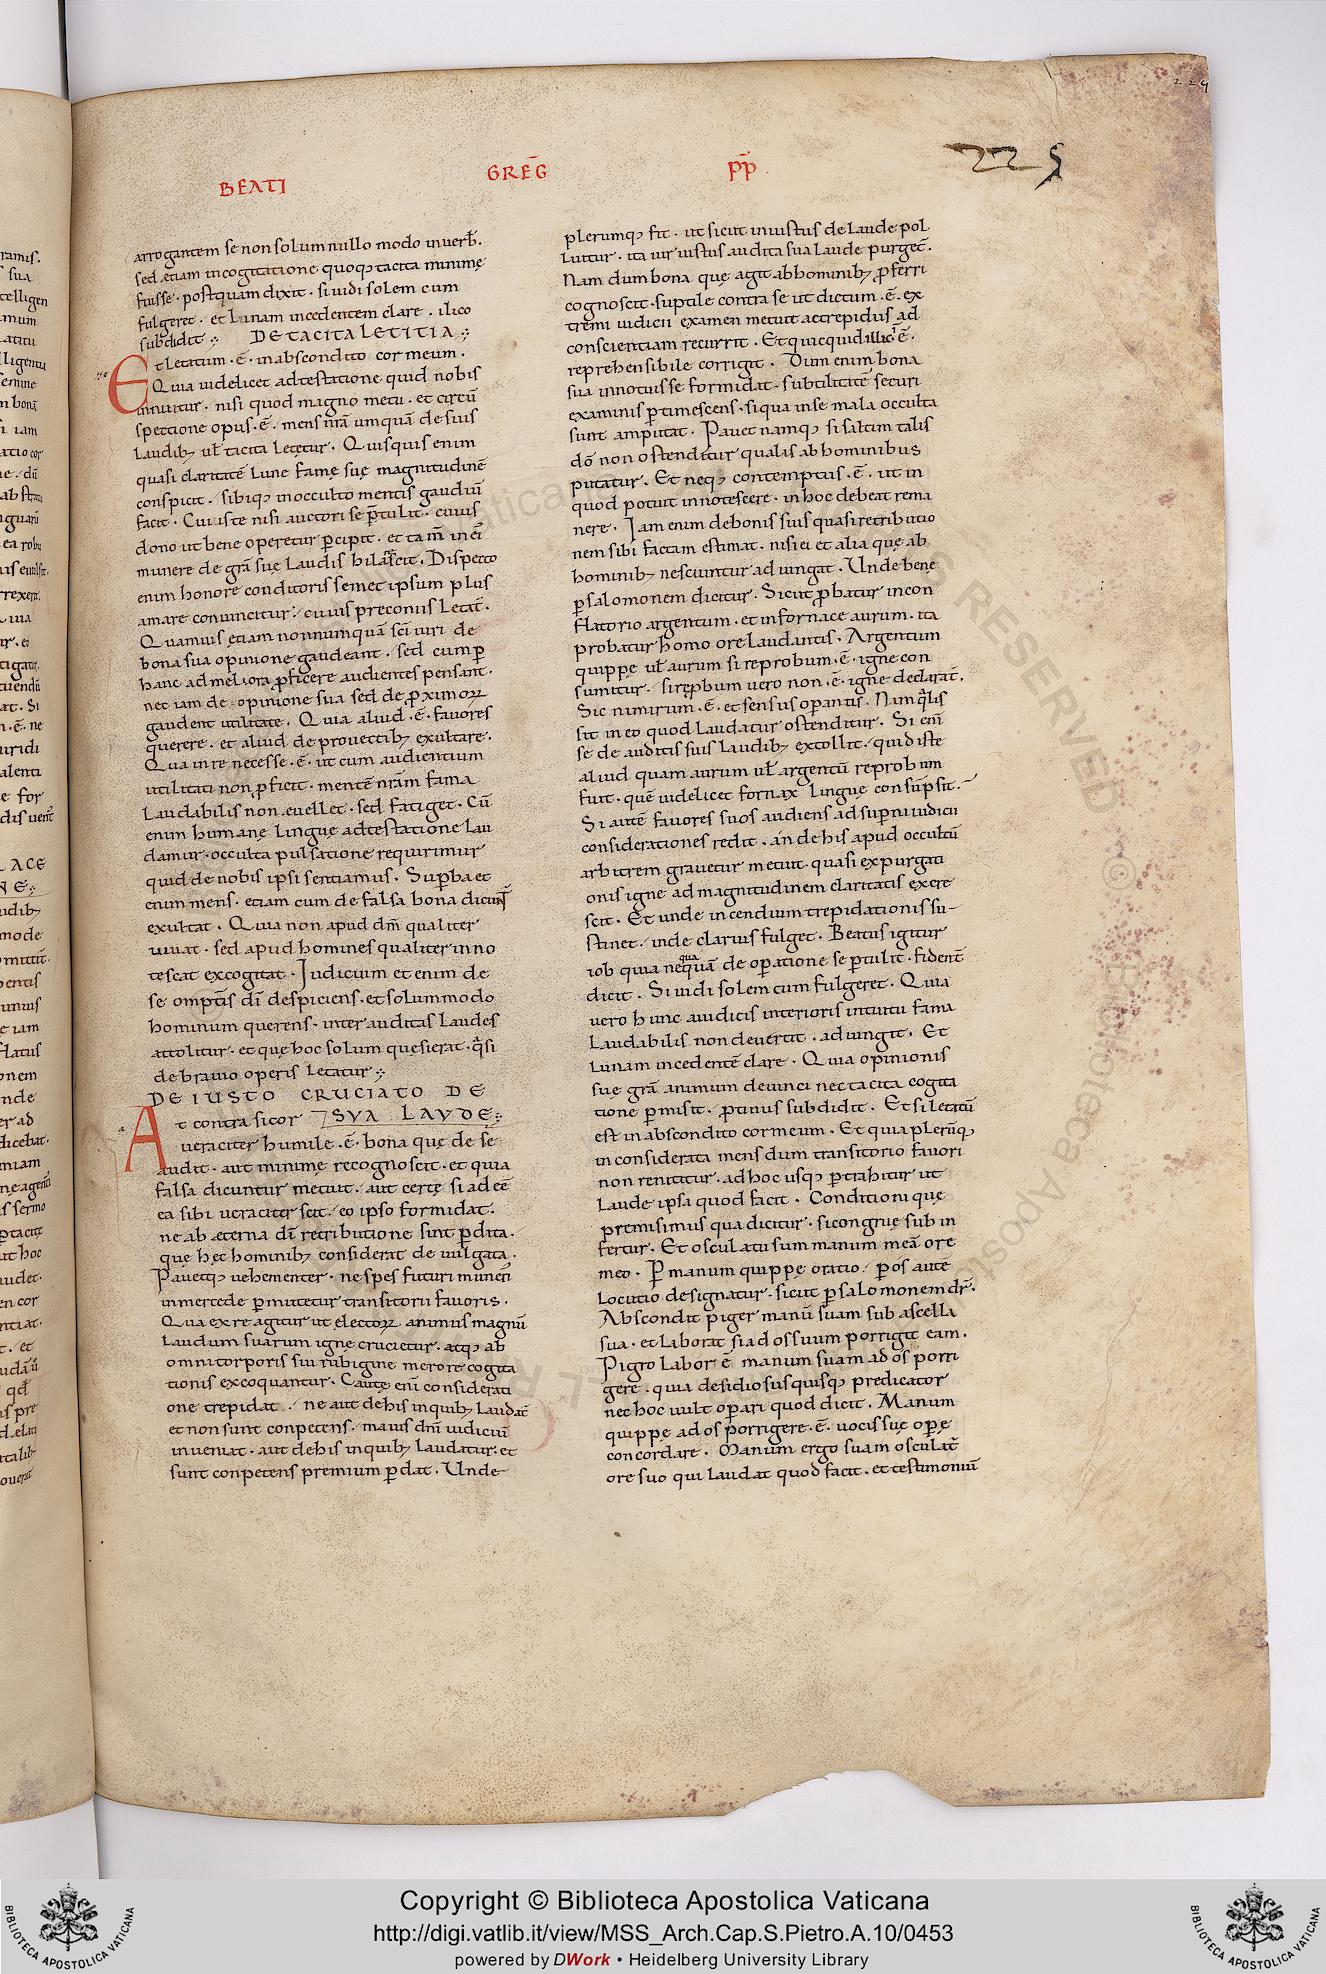 BEATI GREḠ PP̄
224
225
arrogantem se non solum nullo modo in uerb̄.
sed etiam in cogitatione quoq; tacita minimę
fuisse. postquam dixit. si uidi solem cum
fulgeret. et lunam incedentem clare. ilico
subdidit. DE TACITA LETITIA
Et letatum. ē. in abscondito cor meum.
Quia uidelicet adtestatione quid nobis
innuitur. nisi quod magno metu. et circū
spectione opus. ē. mens nrā umquā de suis
laudib; uł tacita letętur. Quisquis enim
quasi claritatē lune famę suę magnitudinē
conspicit. sibiq; in occulto mentis gaudiū
facit. Cui iste nisi auctori se p̄tulit. cuius
dono ut bene operetur p̄cipit. et tam̄ in ei'
munere de grā suę laudis hilarescit. Dispecto
enim honore conditoris semet ipsum plus
amare conuincitur. cuius preconiis letat̄.
Quamuis ętiam nonnumquā sc̄i uiri de
bona sua opinione gaudeant. sed cum p̱
hanc ad meliora ꝓficere audientes pensant.
nec iam de opinione sua sed de ꝓximoꝝ
gaudent utilitate. Quia aliud. ē. fauores
querere. et aliud de prouectib; exultare.
Qua in re necesse. ē. ut cum audientium
utilitati non ꝓficit. mentē nrām fama
laudabilis non euellet. sed fatiget. Cū
enim humanę linguę adtestatione lau
damur. occulta pulsatione requirimur
quid de nobis ipsi sentiamus. Supꝑba et
enim mens. etiam cum de falsa bona dicunt̄
exultat. Quia non apud dm̄ qualiter
uiuat. sed apud homines qualiter inno
tescat excogitat. Iudicium et enim de
se omptis dī despiciens. et solummodo
hominum querens. inter auditas laudes
attolitur. et quę hoc solum quesierat. qͣsi
de brauio operis letatur
DE IUSTO CRUCIATO DE
At contra si cor SUA LAUDE
ueraciter humile. ē. bona quę de se
audit. aut minimę recognoscit. et quia
falsa dicuntur metuit. aut certę si adeē
ea sibi ueraciter scit. eo ipso formidat.
ne ab ęterna dī retributione sint ꝑdita.
quę hęc hominib; considerat deuulgata.
Pauetq; uehementer. ne spes futuri muneris
in mercede ꝑmutetur transitorii fauoris.
Qua ex re agitur ut electoꝝ animus magnū
laudum suarum igne crucietur. atq; ab
omni corporis sui rubigine merore cogita
tionis excoquantur. Cautę enī considerati
one trepidat. ne aut de his in quib; laudat̄
et non sunt conpetens. maius dm̄ iudiciū
inueniat. aut de his in quib; laudatur. et
sunt conpetens premium ꝑdat. Unde
plerumq; fit. ut sicut iniustus de laude pol
luitur. ita uir iustus audita sua laude purget̄.
Nam dum bona quę agit ab hominib; ꝓferri
cognoscit. suptile contra se ut dictum. ē. ex
tremi iudicii examen metuit ac trepidus ad
conscientiam recurrit. Et quicquid illic ē.
reprehensibile corrigit. Dum enim bona
sua innotuisse formidat. subtilitatē securi
examinis ꝑtimescens. si qua in se mala occulta
sunt amputat. Pauet namq; si saltim talis
dō non ostenditur qualis ab hominibus
putatur. Et neq; contemptus. ē. ut in
quod potuit innotescere. in hoc debeat rema
nere. Iam enim de bonis suis quasi retributio
nem sibi factam estimat. nisi ei et alia quę ab
hominib; nesciuntur adiungat. Unde bene
ꝑ salomonem dicitur. Sicut ꝓbatur in con
flatorio argentum. et in fornace aurum. ita
probatur homo ore laudantis. Argentum
quippę uł aurum si reprobum. ē. igne con
sumitur. si reꝓbum uero non. ē. igne declarat̄.
Sic nimirum. ē. et sensus oꝑantis. Nam qͣlis
sit in eo quod laudatur ostenditur. Si enī
se de auditis suis laudib; extollit. quid iste
aliud quam aurum uł argentū reprobum
fuit. quē uidelicet fornax linguę consūpsit.
Si autē fauores suos audiens ad suꝑni iudicii
considerationes redit. an de his apud occultū
arbitrem grauetur metuit. quasi ex purgati
onis igne ad magnitudinem claritatis excre
scit. Et unde incendium trepidationis su-
stinet. inde clarius fulget. Beatus igitur
iob quia neqͣquā de oꝑatione se ꝑtulit. fidenť
dicit. Si uidi solem cum fulgeret. Quia
uero hunc a iudicis interioris intuitu fama
laudabilis non deuertit. adiungit. Et
lunam incedentē clare. Quia opinionis
suę grā animum deuinci nec tacita cogita
tione ꝑmisit. ꝓtinus subdidit. Et si letatū
est in abscondito cor meum. Et quia plerūq;
inconsiderata mens dum transitorio fauori
non renititur. ad hoc usq; ꝑtrahitur ut
laude ipsa quod facit. Conditioni quę
premisimus qua dicitur. si congruę sub in
fertur. Et osculatus sum manum meā ore
meo. Ꝑ manum quippę oratio. ꝑ os autē
locutio designatur. sicut ꝑ salomonem dr̄.
Abscondit piger manū suam sub ascella
sua. et laborat si ad os suum porrigit eam.
Pigro labor ē manum suam ad os porri
gere. quia desidiosus quisq; predicator
nec hoc uult oꝑari quod dicit. Manum
quippę ad os porrigere. ē. uocis suę oꝑę
concordare. Manum ergo suam osculat̄
ore suo qui laudat quod facit. et testimoniū
Copyright © Biblioteca Apostolica Vaticana
http://digi.vatlib.it/view/MSS_Arch.Cap.S.Pietro.A.10/0453
powered by DWork • Heidelberg University Library
BIBLIOTECA APOSTOLICA VATICANA
BIBLIOTECA APOSTOLICA VATICANA